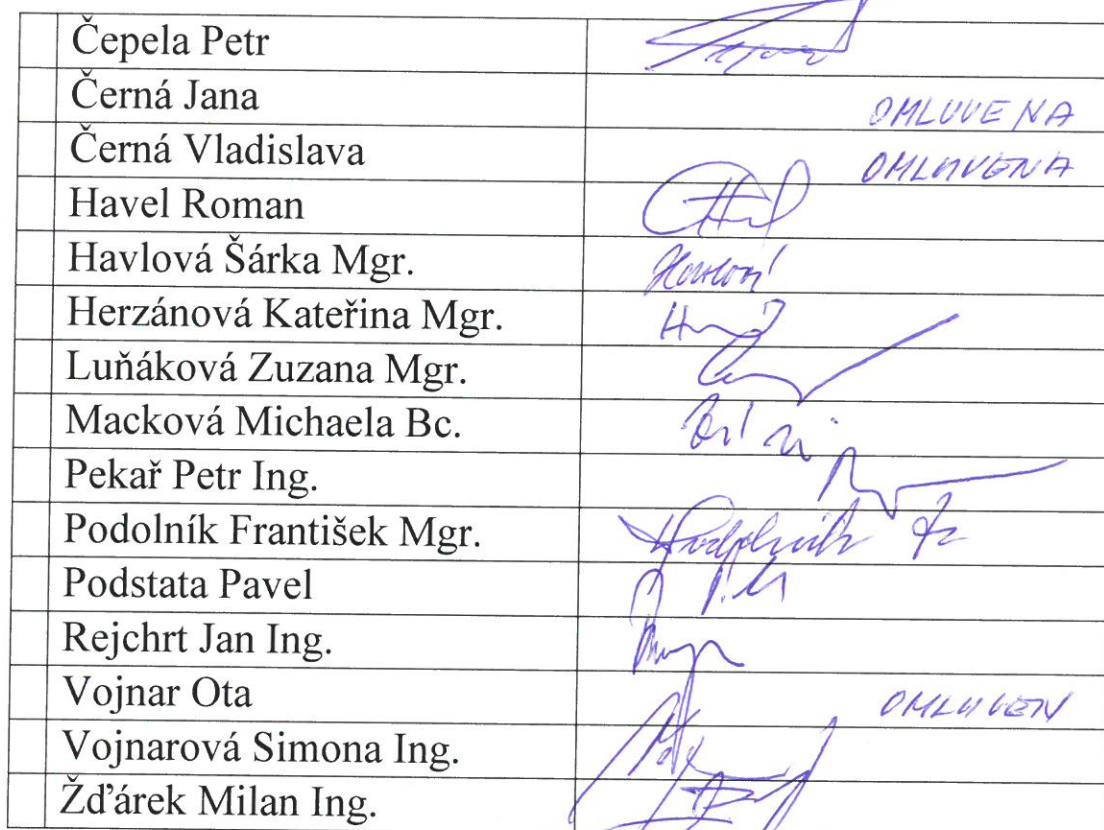 Čepela Petr
Černá Jana OMLUVENA
Černá Vladislava OMLUVENA
Havel Roman
Havlová Šárka Mgr. Havlová
Herzánová Kateřina Mgr.
Luňáková Zuzana Mgr.
Macková Michaela Bc.
Pekař Petr Ing.
Podolník František Mgr. Podolník Fr
Podstata Pavel
Rejchrt Jan Ing.
Vojnar Ota OMLUVEN
Vojnarová Simona Ing.
Žďárek Milan Ing.